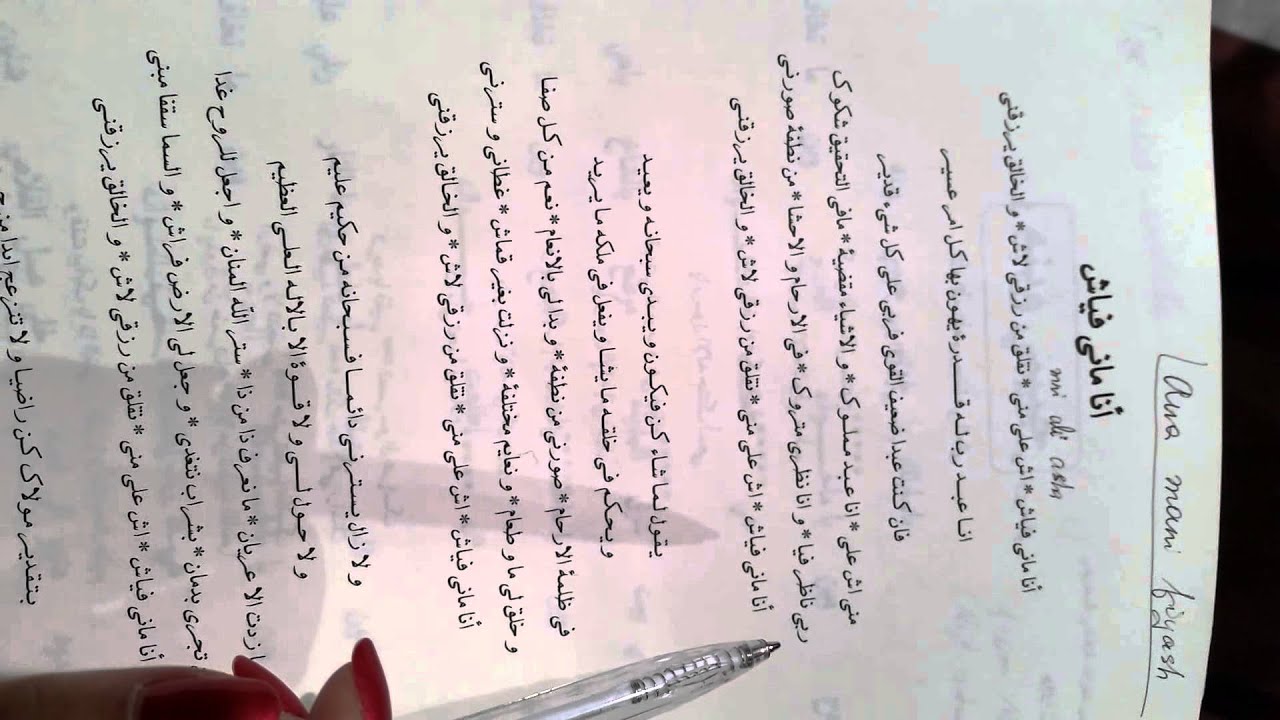 Ana mani fiyash
أنا مانى فياش
mni ali ash
أنا مانى فياش * اش على منى * نقلق من رزقى لاش * و الخالق يرزقنى
انا عبد رب له قــدرة يهون بها كل امر عسير
فان كنت عبدا ضعيف القوى فربى على كل شىء قدير
منى اش على * انا عبد مملوك * و الاشياء مقضية * ما فى التحقيق شكوك
ربى ناظر فيا * و انا نظرى متروك * فى الارحام و الاحشا * من نطفة صورنى
أنا مانى فياش * اش على منى * نقلق من رزقى لاش * و الخالق يرزقنى
يقول لما شاء كن فيكون و يبدى سبحانه و يعيد
و يحكم فى خلقه ما يشا و يفعل فى ملكه ما يريد
فى ظلمة الارحام * صورنى من نطفة * و بدا لى بالانعام * نعم من كل صفا
و خلق لى ما و طعام * و نعايم مختلفة * و نزلت بغير قماش * غطانى و سترنى
أنا مانى فياش * اش على منى * نقلق من رزقى لاش * و الخالق يرزقنى
و لا زال يسترنى دائما فسبحانه من حكيم عليم
و لا حول لى و لا قوة الا بالاله العلى العظيم
زدت الا عريان * ما نعرف ذا من ذا * ستر الله المنان * و اجعل للروح غذا
تجرى بدمان * بشراب نتغدى * و جعل لى الارض فراش * و السما سقفا مبنى
أنا مانى فياش * اش على منى * نقلق من رزقى لاش * و الخالق يرزقنى
بتقدير مولاك كن راضيا و لا تنزعج ابدا من